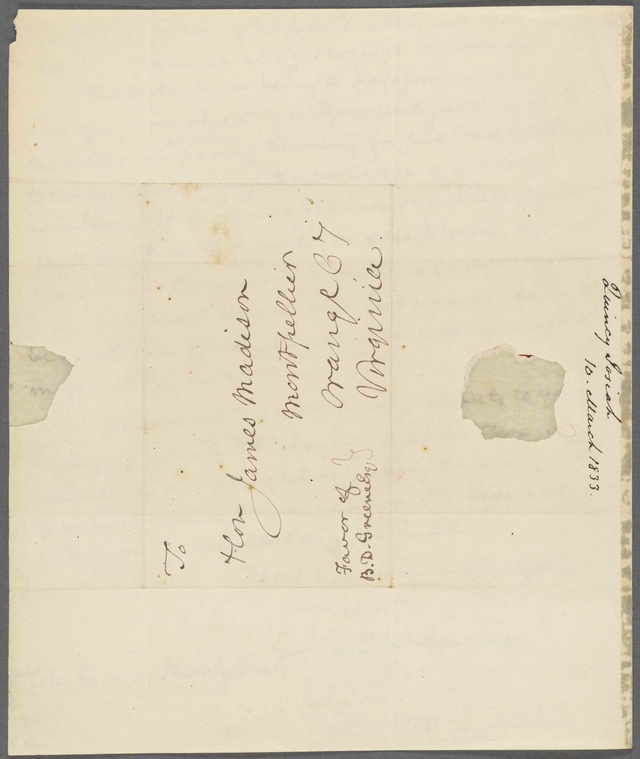 To
Hon James Madison
Montpellier
Orange Cy
Virginia.
Favor of
B. D. Greene Esq
Quincy Josiah
10. March 1833.